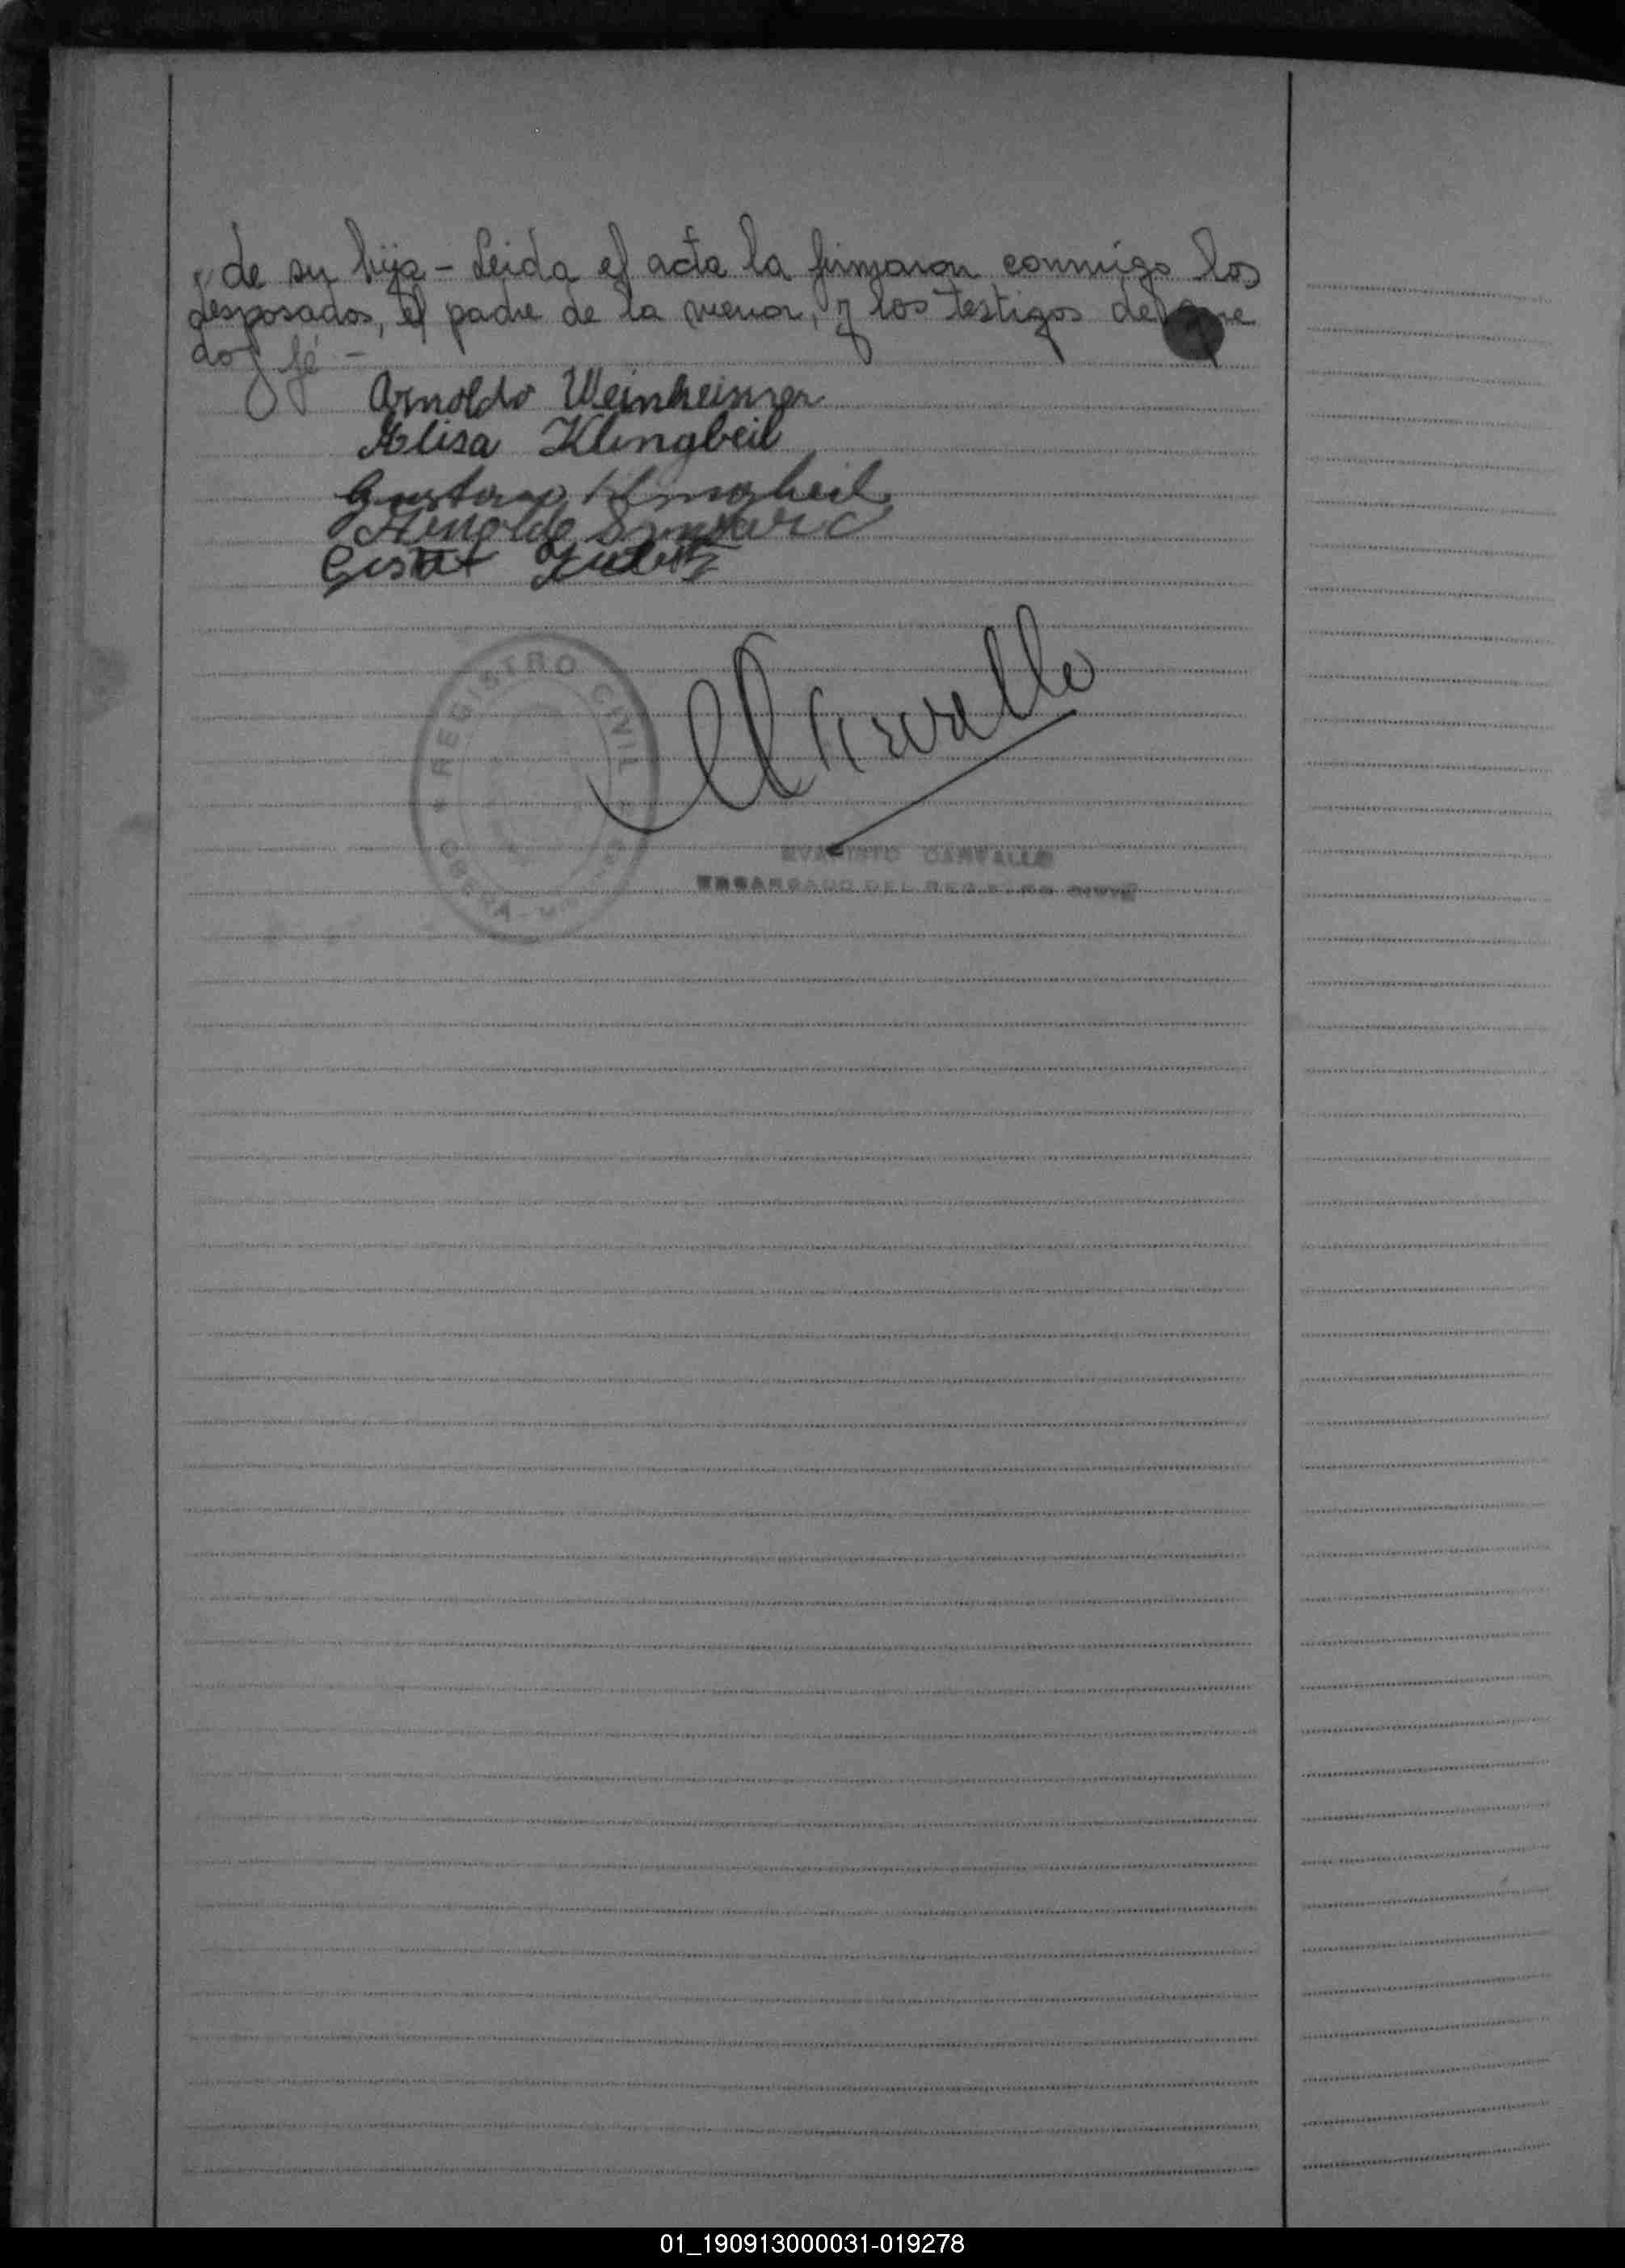 de su hija - Leida el acta la firmaron conmigo los
desposados, el padre de la menor, y los testigos de que
doy fé -
Arnoldo Weinheimer
Elisa Klingbeil
Gustavo Klingbeil
Arnoldo
Gustav
REGISTRO CIVIL
EVARISTO CARVALLO
ENCARGADO DEL REGISTRO CIVIL
01_190913000031-019278